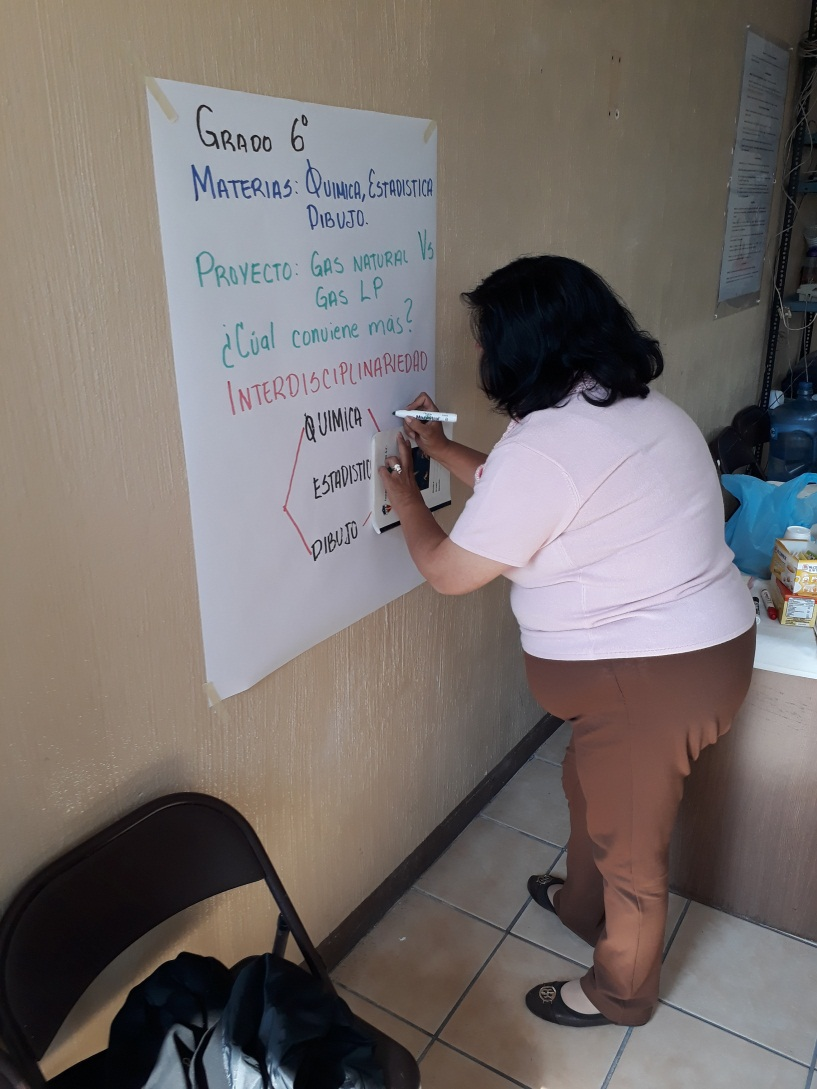 GRADO 6°
MATERIAS: QUIMICA, ESTADISTICA
DIBUJO.
PROYECTO: GAS NATURAL Vs
GAS LP
¿Cúal conviene más?
INTERDISCIPLINARIEDAD
QUIMICA
ESTADISTIC
DIBUJO